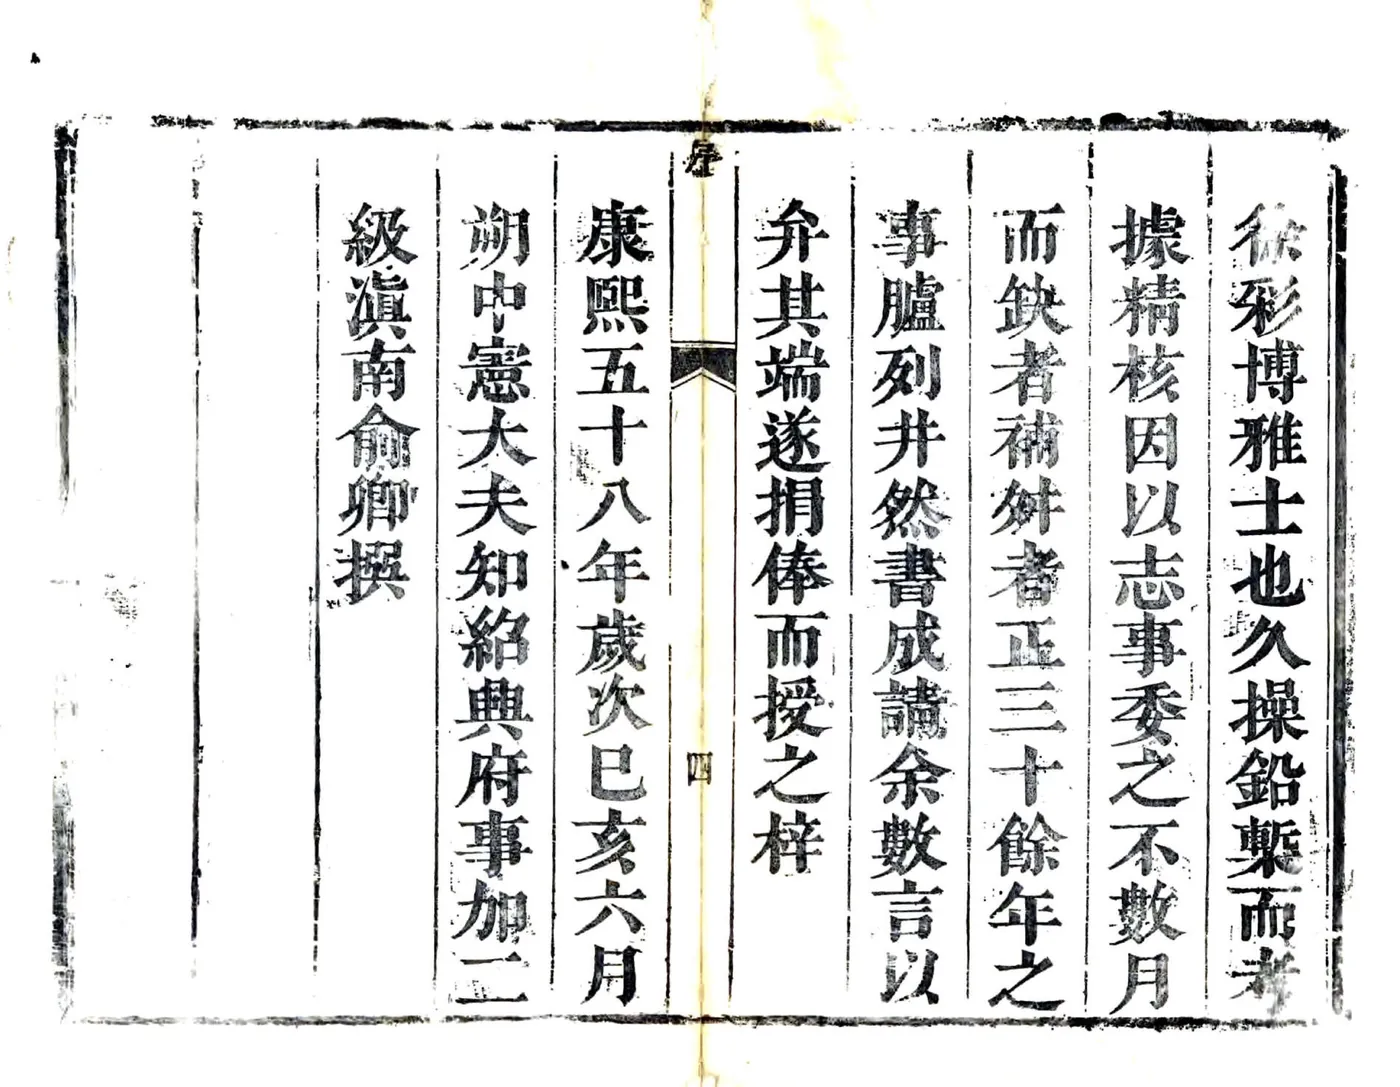 徐彩博雅士也久操鉛槧而考
據精核因以志事委之不數月
而缺者補舛者正三十餘年之
事臚列井然書成請余數言以
弁其端遂捐俸而授之梓
序
四
康熙五十八年歲次巳亥六月
朔中憲大夫知紹興府事加二
級滇南俞卿撰